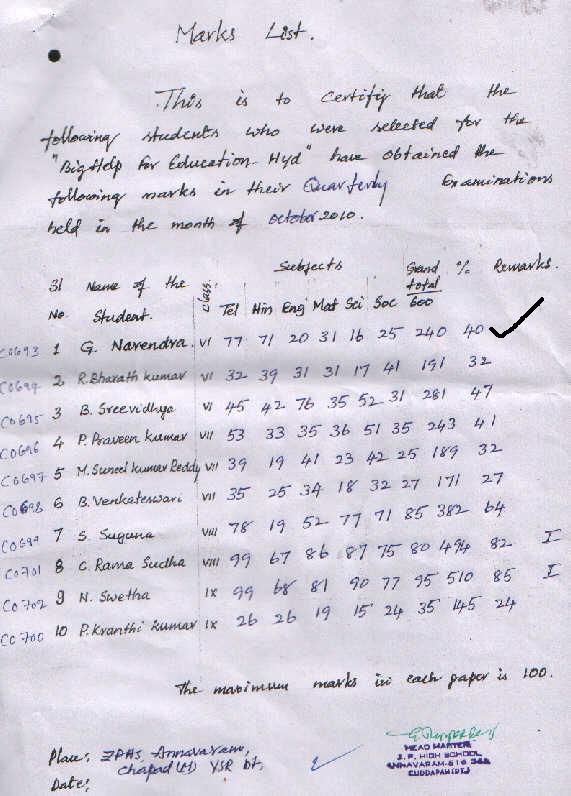 Marks List.
This is to certifiy that the
following students who were selected for the
"Big Help For Education - Hyd" have obtained the
following marks in their Quarterly Examinations
held in the month of october 2010.
Sl No. Name of the Student. Class. Subjects Grand total 600 % Remarks.
Tel Hin Eng Mat Sci Soc
C0693 1 G. Narendra VI 77 71 20 31 16 25 240 40
C0694 2 R. Bharath kumar VI 32 39 31 31 17 41 191 32
C0695 3 B. Sreevidhya VI 45 42 76 35 52 31 281 47
C0696 4 P. Praveen kumar VII 53 33 35 36 51 35 243 41
C0697 5 M. Suneel kumar Reddy VII 39 19 41 23 42 25 189 32
C0698 6 B. Venkateswari VII 35 25 34 18 32 27 171 27
C0699 7 S. Suguna VIII 78 19 52 77 71 85 382 64
C0701 8 C. Rama Sudha VIII 99 67 86 87 75 80 494 82 I
C0702 9 N. Swetha IX 99 68 81 90 77 95 510 85 I
C0700 10 P. Kranthi kumar IX 26 26 19 15 24 35 145 24
The maximum marks in each paper is 100.
Place: ZPHS, Annavaram,
Chapad (M) YSR Dt,
Date:
HEAD MASTER
Z. P. HIGH SCHOOL
ANNAVARAM-516 355
CUDDAPAH (DT.)